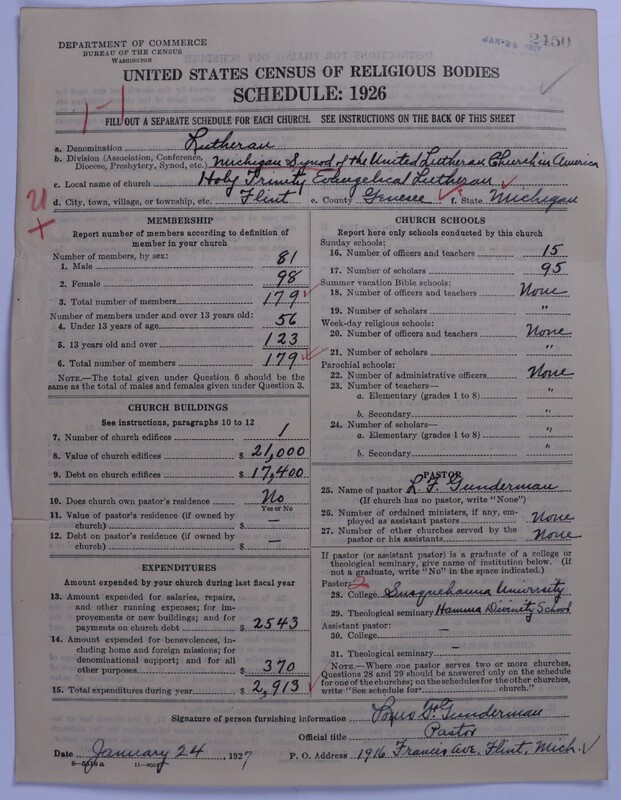 DEPARTMENT OF COMMERCE
BUREAU OF THE CENSUS
WASHINGTON
2450
UNITED STATES CENSUS OF RELIGIOUS BODIES
SCHEDULE: 1926
1-1
FILL OUT A SEPARATE SCHEDULE FOR EACH CHURCH. SEE INSTRUCTIONS ON THE BACK OF THIS SHEET
a. Denomination Lutheran
b. Division (Association, Conference, Diocese, Presbytery, Synod, etc.) Michigan Synod of the United Lutheran Church in America
c. Local name of church Holy Trinity Evangelical Lutheran
d. City, town, village, or township, etc. Flint e. County Genesee f. State Michigan
MEMBERSHIP
Report number of members according to definition of
member in your church
Number of members, by sex:
1. Male 81
2. Female 98
3. Total number of members 179
Number of members under and over 13 years old:
4. Under 13 years of age 56
5. 13 years old and over 123
6. Total number of members 179
NOTE.—The total given under Question 6 should be
the same as the total of males and females given under Question 3.
CHURCH BUILDINGS
See instructions, paragraphs 10 to 12
7. Number of church edifices 1
8. Value of church edifices $ 21,000
9. Debt on church edifices $ 17,400
10. Does church own pastor's residence No
Yes or No
11. Value of pastor's residence (if owned by
church) $ —
12. Debt on pastor's residence (if owned by
church) $ —
EXPENDITURES
Amount expended by your church during last fiscal year
13. Amount expended for salaries, repairs,
and other running expenses; for im-
provements or new buildings; and for
payments on church debt $ 2543
14. Amount expended for benevolences, in-
cluding home and foreign missions; for
denominational support; and for all
other purposes $ 370
15. Total expenditures during year $ 2,913
CHURCH SCHOOLS
Report here only schools conducted by this church
Sunday schools:
16. Number of officers and teachers 15
17. Number of scholars 95
Summer vacation Bible schools:
18. Number of officers and teachers None
19. Number of scholars "
Week-day religious schools:
20. Number of officers and teachers None
21. Number of scholars "
Parochial schools:
22. Number of administrative officers None
23. Number of teachers—
a. Elementary (grades 1 to 8) "
b. Secondary "
24. Number of scholars—
a. Elementary (grades 1 to 8) "
b. Secondary "
PASTOR
25. Name of pastor L. F. Gunderman
(If church has no pastor, write "None")
26. Number of ordained ministers, if any, em-
ployed as assistant pastors None
27. Number of other churches served by the
pastor or his assistants None
If pastor (or assistant pastor) is a graduate of a college or
theological seminary, give name of institution below. (If
not a graduate, write "No" in the space indicated.)
Pastor: 2
28. College Susquehanna University
29. Theological seminary Hamma Divinity School
Assistant pastor:
30. College —
31. Theological seminary —
NOTE.—Where one pastor serves two or more churches,
Questions 28 and 29 should be answered only on the schedule
for one of the churches; on the schedules for the other churches,
write "See schedule for church."
Signature of person furnishing information Gunderman
Official title Pastor
Date January 24, 1927 P. O. Address 1916 Francis Ave, Flint, Mich.